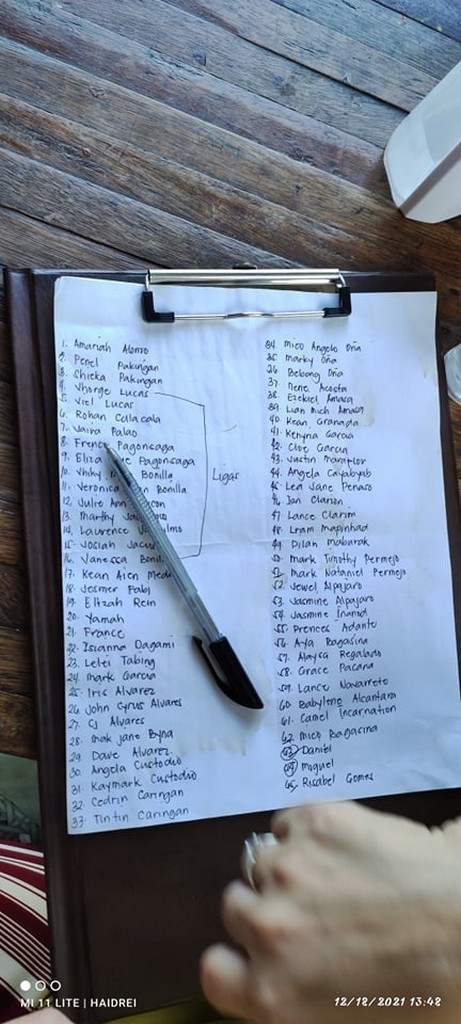 1. Amariah Alonzo
2. Pepel Pakungan
3. Shieka Pakungan
4. Vhorge Lucas
5. Viel Lucas
6. Rohan Calacala
7. Jaira Palao
8. Frence Pagonzaga
9. Eliza Pagonzaga
10. Vhky Bonilla
11. Veronica Bonilla
12. Julie Ann
13. Marthy
14. Laurence
15. Josiah
16. Vanessa
17. Kean Aien
18. Jesmer Pabj
19. Elizah Rein
20. Yamah
21. France
22. Isianna Dagami
23. Lelei Tabing
24. Mark Garcia
25. Iris Alvarez
26. John Cyrus Alvares
27. CJ Alvares
28. Mak Jano Byna
29. Dave Alvarez
30. Angela Custodio
31. Kaymark Custodio
32. Cedrin Caringan
33. Tintin Caringan
Ligas
34. Mico Angelo Oña
35. Marky Oña
36. Bebong Oña
37. Nene Acosta
38. Ezekiel Amasa
39. Lian Rich Amasa
40. Kean Granada
41. Kenyna Garcia
42. Cloe Garcia
43. Justin Manaflor
44. Angela Cayabyab
45. Lea Jane Penaso
46. Ian Clarion
47. Lance Clarion
48. Liam Mapinhad
49. Dilan Mabarak
50. Mark Timothy Permejo
51. Mark Nataniel Permejo
52. Jewel Alpajaro
53. Jasmine Alpajaro
54. Jasmine Inanod
55. Prences Adante
56. Aya Ragasina
57. Alaysa Regalado
58. Grace Pacana
59. Lance Navarreto
60. Babylene Alcantara
61. Camel Incarnation
62. Mico Ragasina
63. Daniel
64. Miguel
65. Risabel Gomes
MI 11 LITE | HAIDREI
12/18/2021 13:48